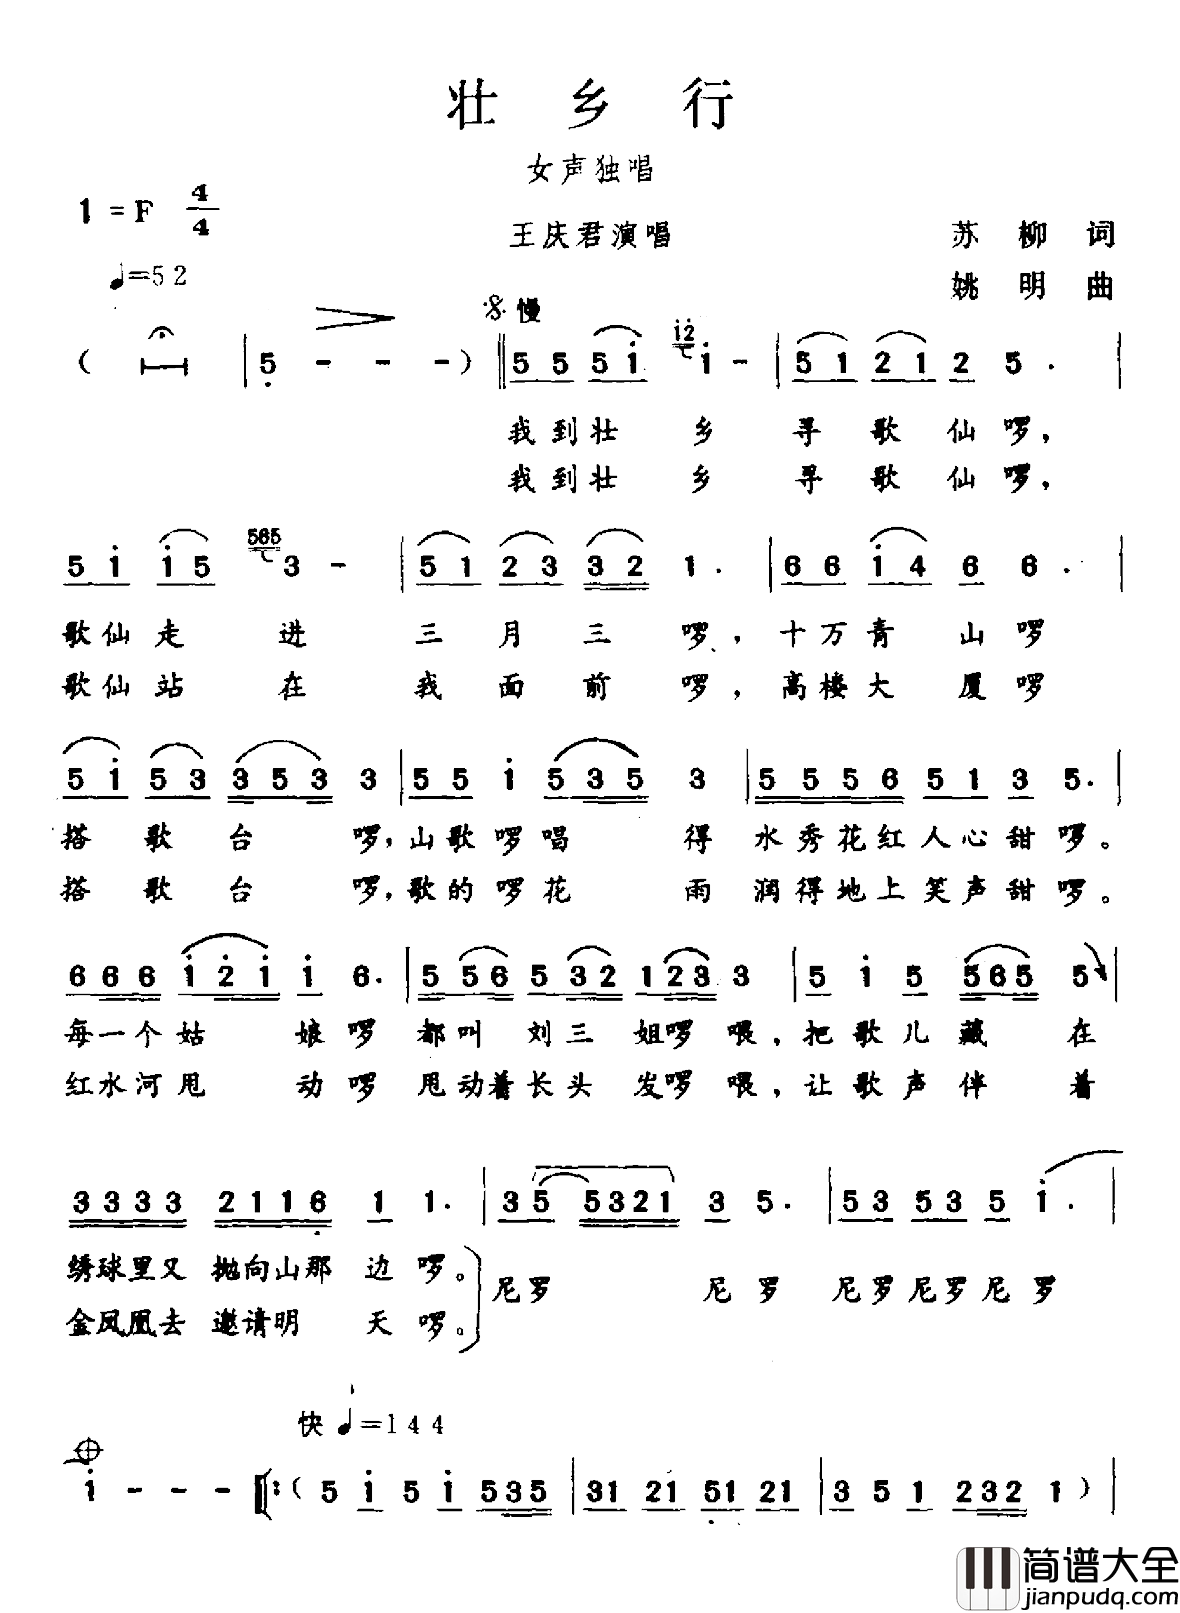 壮乡行
女声独唱
1=F 4/4
王庆君演唱
苏柳词
♩=52
姚明曲
慢
( 5 - - - ) 5 5 5 1 12 1 - | 5 1 2 1 2 5 . |
我到壮乡寻歌仙啰，
我到壮乡寻歌仙啰，
5 1 1 5 565 3 - | 5 1 2 3 3 2 1 . | 6 6 1 4 6 6 . |
歌仙走进三月三啰，十万青山啰
歌仙站在我面前啰，高楼大厦啰
5 1 5 3 3 5 3 3 | 5 5 1 5 3 5 3 | 5 5 5 6 5 1 3 5 . |
搭歌台啰，山歌啰唱得水秀花红人心甜啰。
搭歌台啰，歌的啰花雨润得地上笑声甜啰。
6 6 6 1 2 1 1 6 . | 5 5 6 5 3 2 1 2 3 3 | 5 1 5 5 6 5 5 |
每一个姑娘啰都叫刘三姐啰喂，把歌儿藏在
红水河甩动啰甩动着长头发啰喂，让歌声伴着
3 3 3 3 2 1 1 6 1 1 . | 3 5 5 3 2 1 3 5 . | 5 3 5 3 5 1 . |
绣球里又抛向山那边啰。尼罗尼罗尼罗尼罗尼罗
金凤凰去邀请明天啰。
快 ♩=144
1 - - - :( 5 1 5 1 5 3 5 | 31 21 51 21 | 3 5 1 2 3 2 1 ) |
简谱大全
jianpudq.com